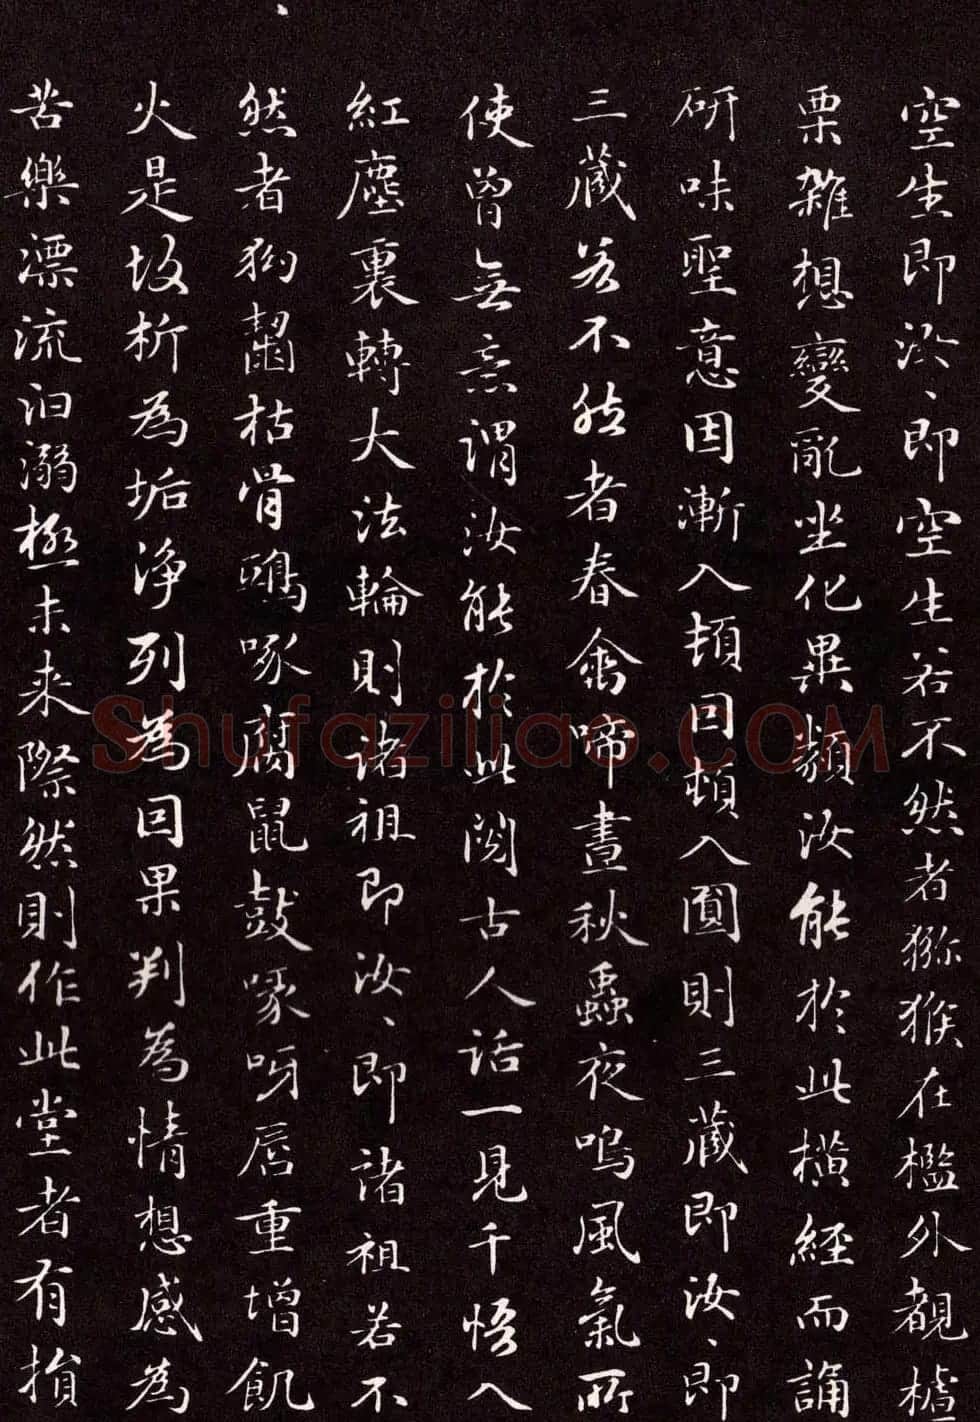 空生即汝、即空生若不然者猕猴在檻外覩樝
栗雜想變亂坐化異類汝能於此横經而誦
研味聖意因漸入頓因頓入圓則三藏即汝、即
三藏若不然者春禽啼晝秋蟲夜鳴風氣所
使曾無意謂汝能於此閲古人話一見千悟入
紅塵裏轉大法輪則諸祖即汝、即諸祖若不
然者狗齧枯骨鴟啄腐鼠鼓喙呀唇重增飢
火是故析為垢净列為因果判為情想感為
苦樂漂流汩溺極未来際然則作此堂者有損
Shufaziliao.COM